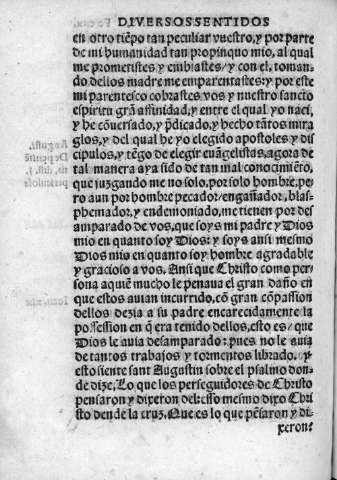 DIVERSOS SENTIDOS
en otro tiẽpo tan peculiar vuestro, y por parte
de mi humanidad tan propinquo mio, al qual
me prometistes y embiastes/ y con el, toman-
do dellos madre me emparentastes: y por este
mi parentesco cobrastes vos y nuestro sancto
espiritu grã affinidad, y entre el qual yo naci,
y he cõuersado, y p̃dicado, y hecho tãtos mira
glos, y del qual he yo elegido apostoles y dis
cipulos, y tẽgo de elegir euãgelistas, agora de
tal manera aya sido de tan mal conocimiẽto,
que juzgando me no solo, por solo hombre, pe
ro aun por hombre pecador/ engañador, blas-
phemador, y endemoniado, me tienen por des
amparado de vos, que soys mi padre y Dios
mio en quanto soy Dios: y soys ansi mesmo
Dios mio en quanto soy hombre agradable
y gracioso a vos. Ansi que Christo como per-
sona aquiẽ mucho le penaua el gran daño en
que estos auian incurrido, cõ gran cõpassion
dellos dezia a su padre encarecidamente la
possession en q̃ era tenido dellos, esto es/ que
Dios le auia desamparado: pues no le auia
de tantos trabajos y tormentos librado. y
esto siente sant Augustin sobre el psalmo don-
de dize, Lo que los perseguidores de Christo
pensaron y dixeron del: esso mesmo dixo Chri
sto dende la cruz. Que es lo que pẽsaron y di-
xeron?